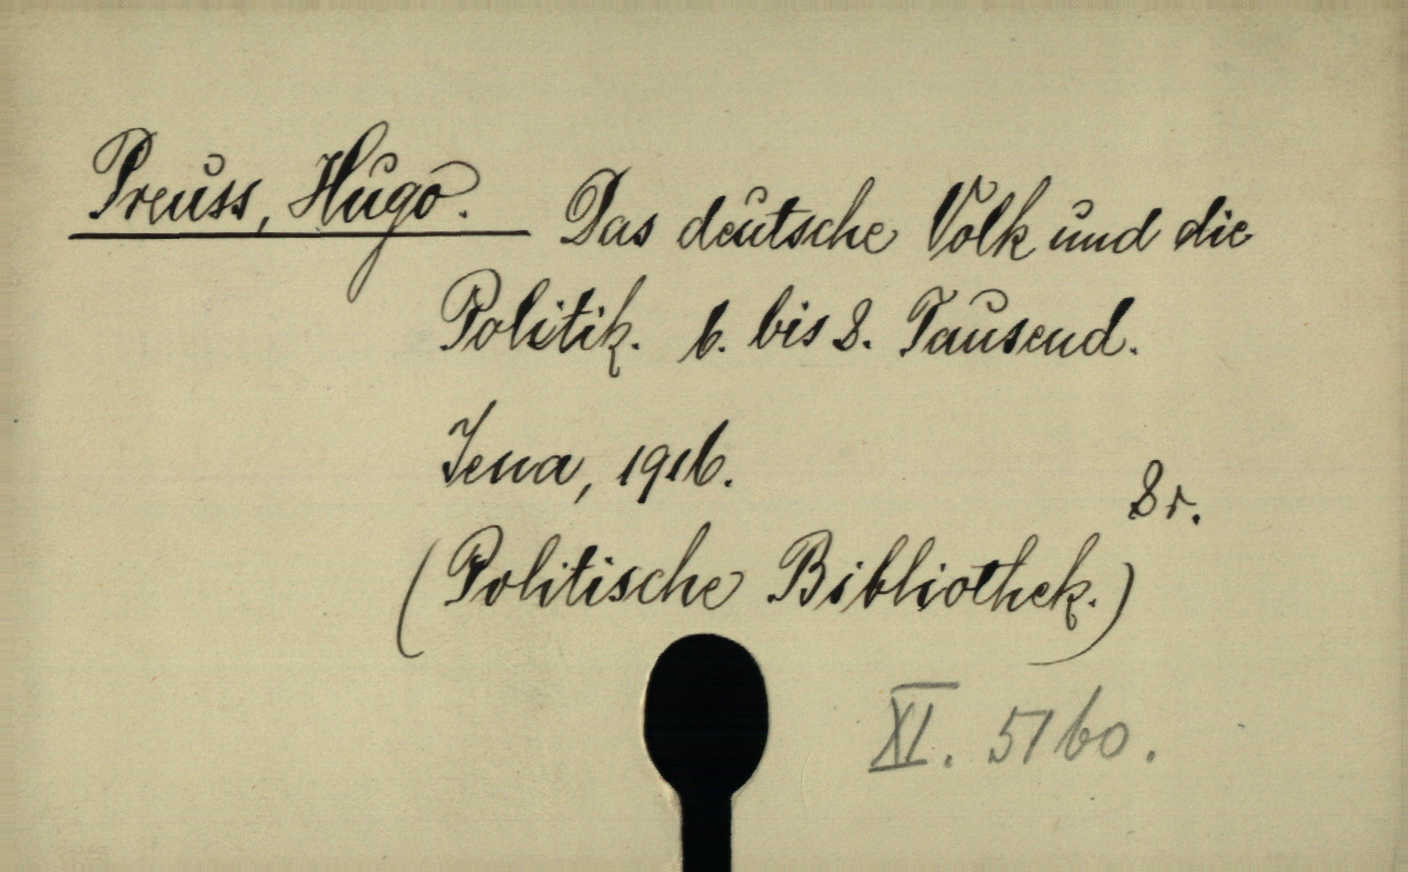 Preuss, Hugo. Das deutsche Volk und die
Politik. 6. bis 8. Tausend.
Jena, 1916.
8r.
(Politische Bibliothek.)
XI. 5160.